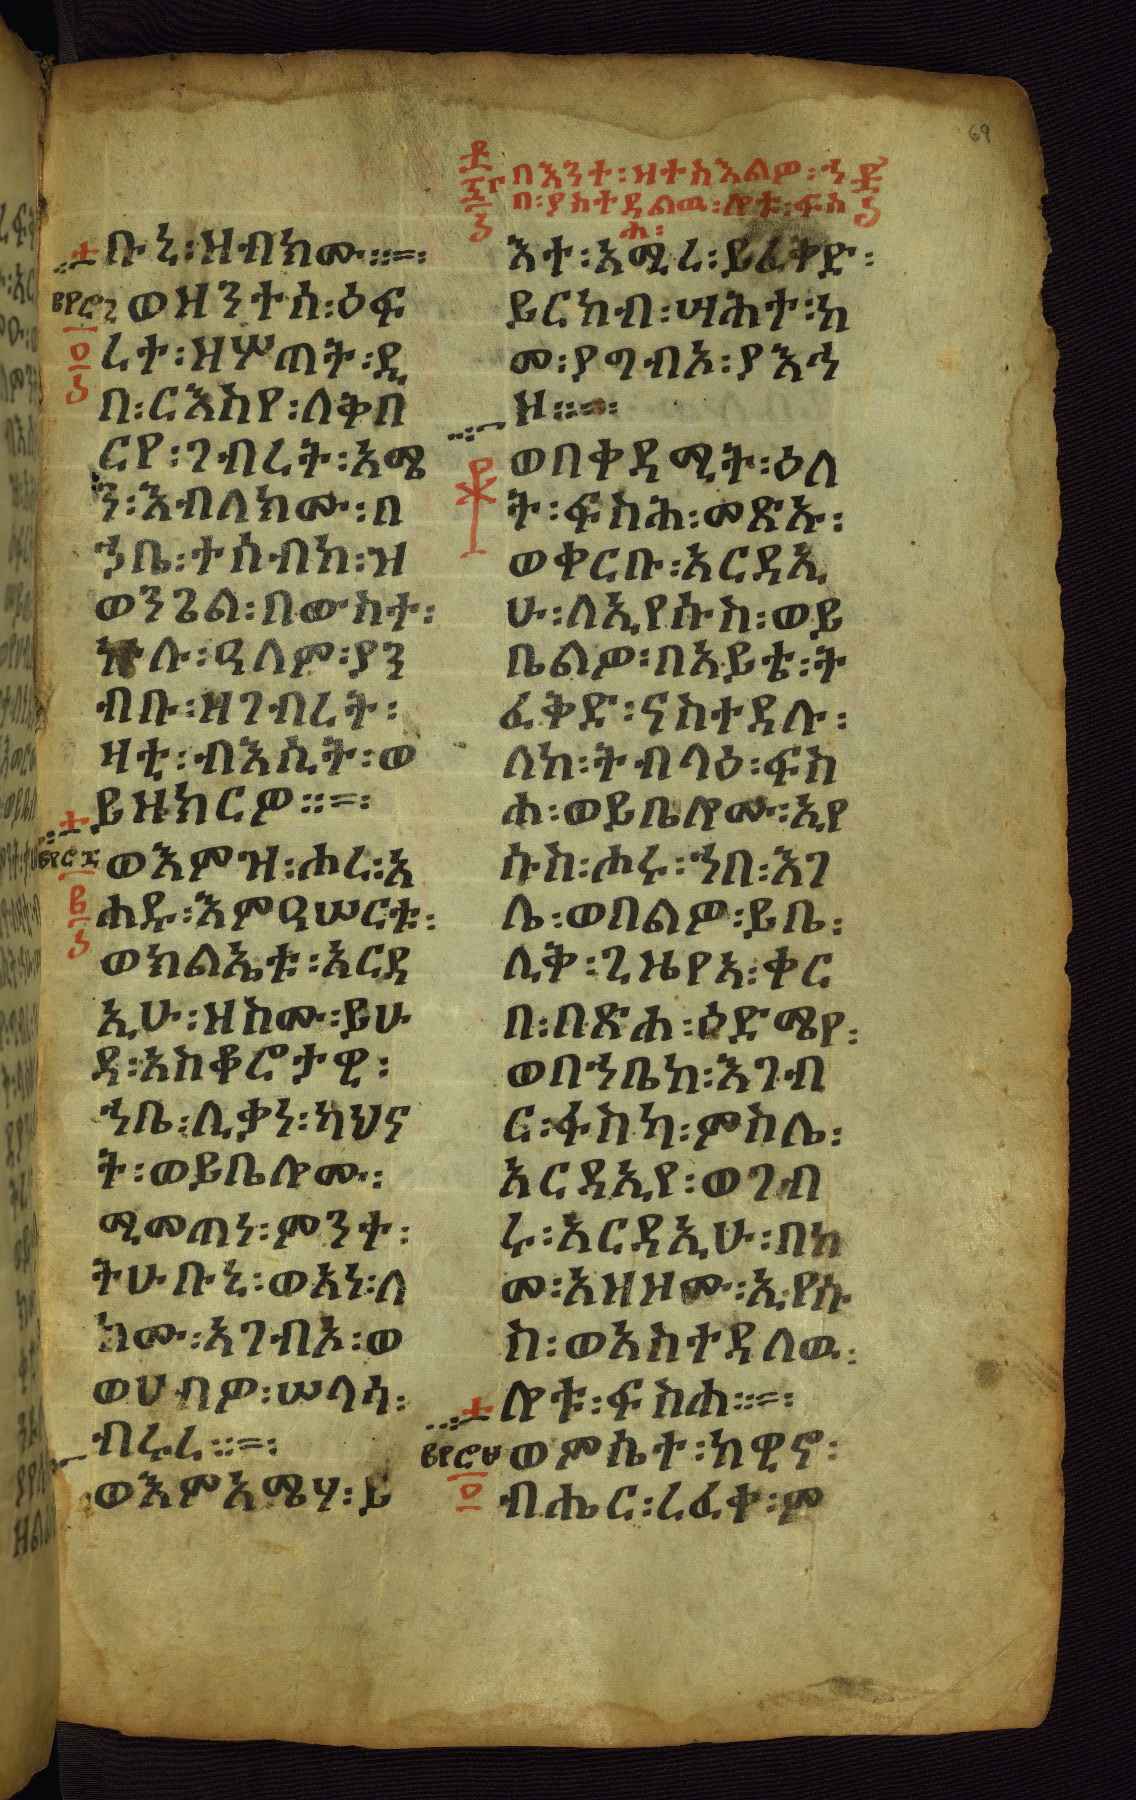 69
በእንተ፡ዘተስእልዎ፡ኀ
በ፡ያስተዳልዉ፡ሎቱ፡ፍስ
ሐ፡
ቡኒ፡ዝብክሙ።=፡
ወዝንተሰ፡ዕፍ
ረተ፡ዘሦጠት፡ዲ
በ፡ርእስየ፡ለቅበ
ርየ፡ገብረት፡አሜ
ን፡እብለክሙ፡በ
ኀቤ፡ተሰብከ፡ዝ
ወንጌል፡በውስተ፡
ኵሉ፡ዓለም፡ያን
ብቡ፡ዘገብረት፡
ዛቲ፡ብእሲት፡ወ
ይዝክርዎ።=፡
ወእምዝ፡ሖረ፡አ
ሐዱ፡እምዓሠርቱ፡
ወክልኤቱ፡አርዳ
ኢሁ፡ዘስሙ፡ይሁ
ዳ፡አስቆሮታዊ፡
ኀቤ፡ሊቃነ፡ካህና
ት፡ወይቤሎሙ፡
ሚመጠነ፡ምንተ፡
ትሁቡኒ፡ወአነ፡ለ
ክሙ፡አገብኦ፡ወ
ወሀብዎ፡ሠላሳ፡
ብሩረ።=፡
ወእምአሜሃ፡ይ
እተ፡አሚረ፡ይፈቅድ፡
ይርከብ፡ሣሕተ፡ከ
መ፡ያግብኦ፡ያእኅ
ዝ።=፡
ወበቀዳሚት፡ዕለ
ት፡ፍስሕ፡መጽኡ፡
ወቀርቡ፡አርዳኢ
ሁ፡ለኢየሱስ፡ወይ
ቤልዎ፡በአይቴ፡ት
ፈቅድ፡ናስተዳሉ፡
ለከ፡ትብላዕ፡ፍስ
ሐ፡ወይቤሎሙ፡ኢየ
ሱስ፡ሖሩ፡ኀበ፡እገ
ሌ፡ወበልዎ፡ይቤ፡
ሊቅ፡ጊዜየኣ፡ቀር
በ፡በጽሐ፡ዕድሜየ፡
ወበኀቤከ፡እገብ
ር፡ፋስካ፡ምስሌ፡
አርዳኢየ፡ወገብ
ሩ፡አርዳኢሁ፡በከ
መ፡አዘዞሙ፡ኢየሱ
ስ፡ወአስተዳለዉ፡
ሎቱ፡ፍስሐ።=፡
ወምሴተ፡ከዊኖ፡
ብሔር፡ረፈቀ፡ም